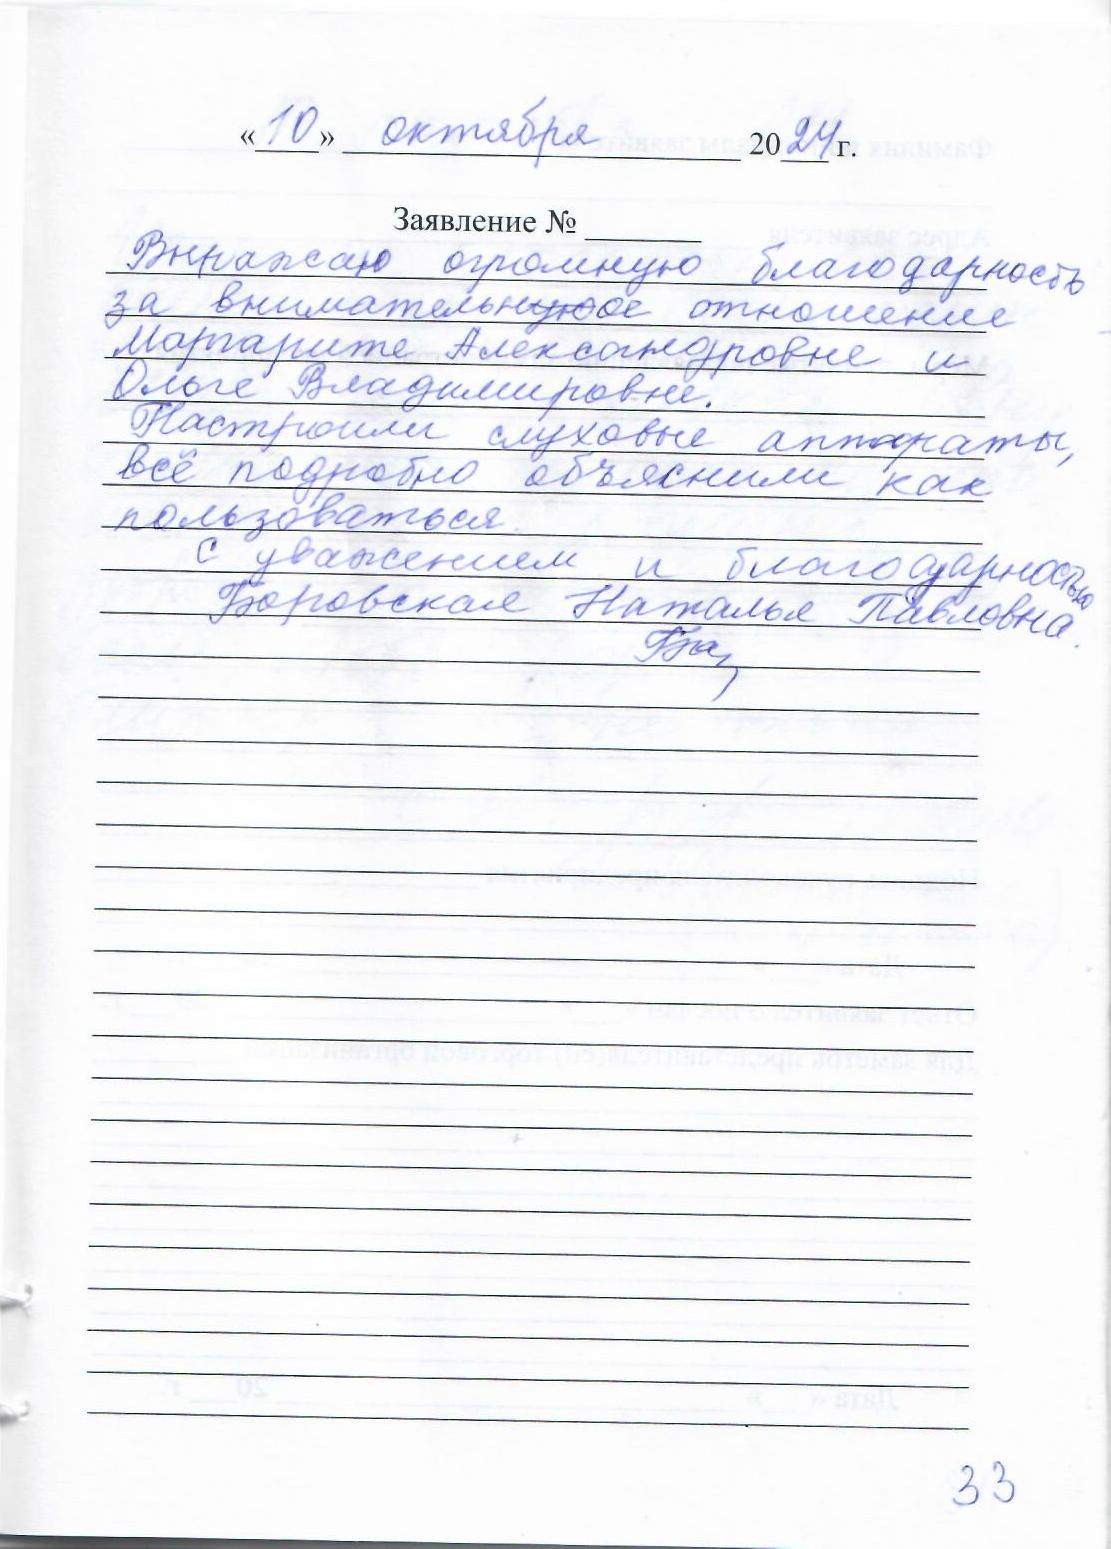 «10» октября 2024 г.
Заявление № ______
Выражаю огромную благодарность
за внимательное отношение
Маргарите Александровне и
Ольге Владимировне.
Настроили слуховые аппараты,
всё подробно объяснили как
пользоваться.
С уважением и благодарностью
Боровская Наталья Павловна.
33